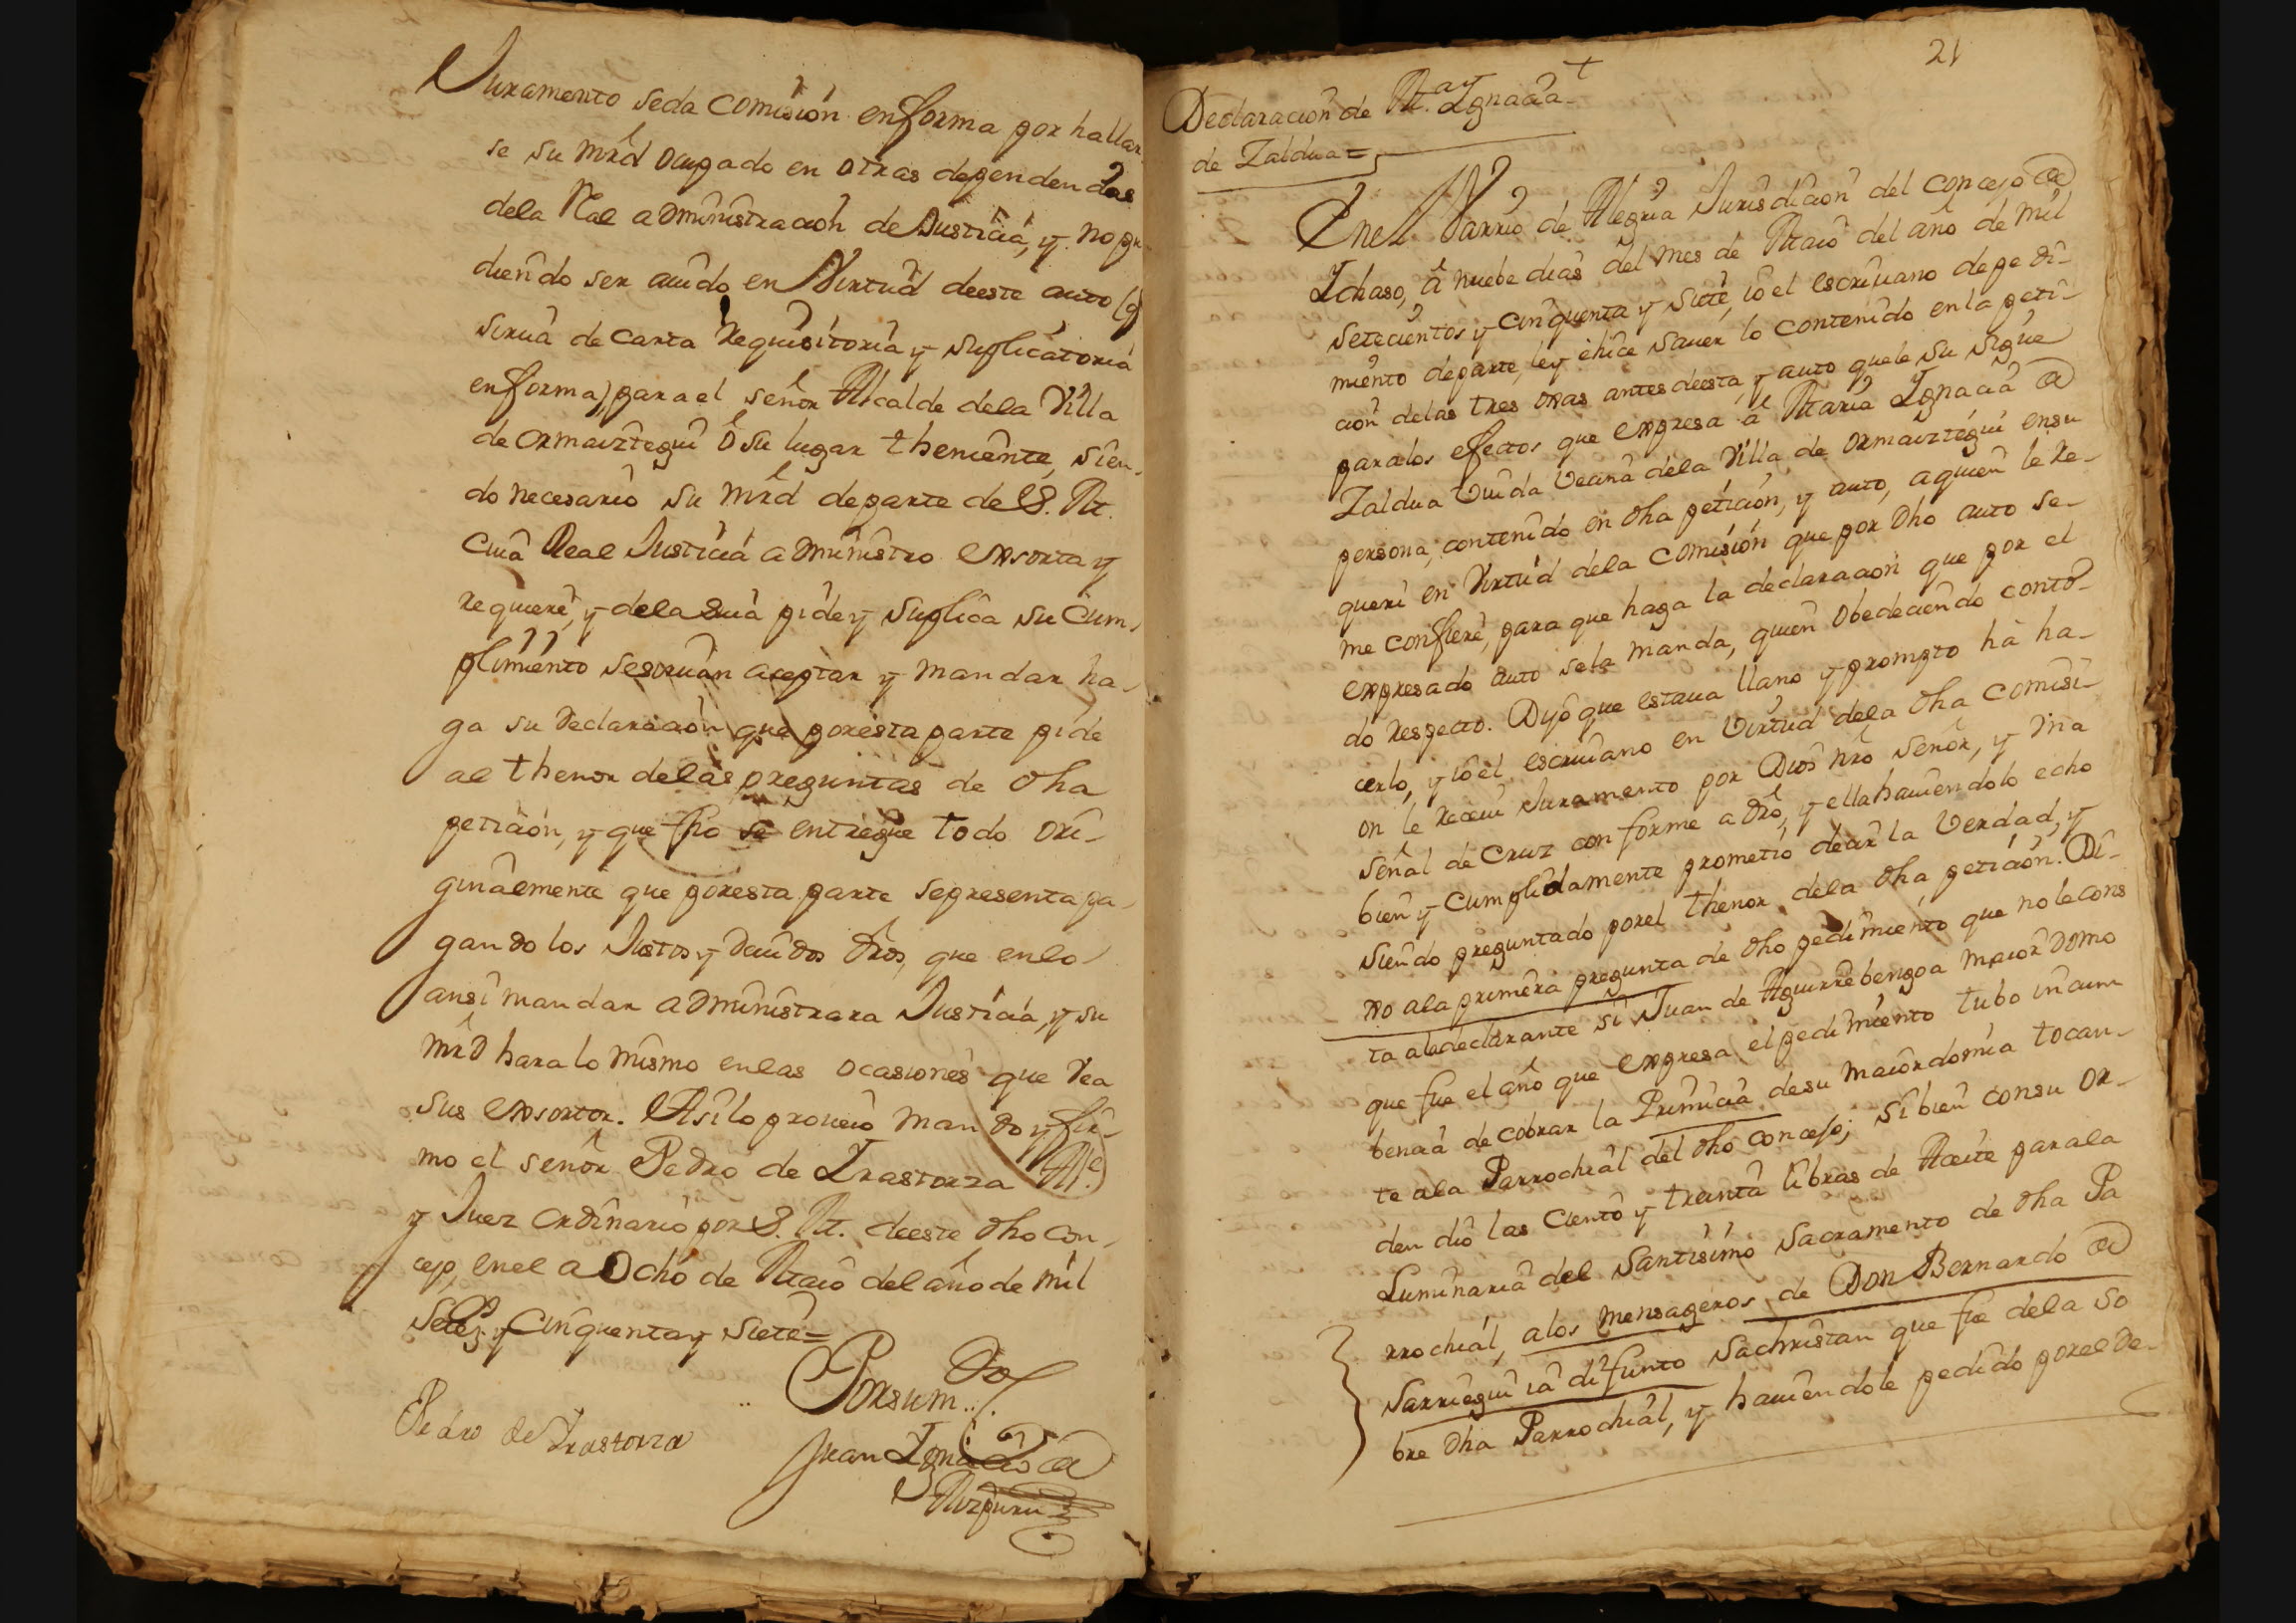 Juramento seda comision enforma por hallar
se su mrd ocupado en otras dependencias
dela Ral administracion de Justicia, y no pu
diendo ser auido en Virtud deeste auto (q
sirua de carta requisitoria y suplicatoria
enforma) para el señor Alcalde dela Villa
de ormaiztegui ô su lugar theniente, sien
do necesario su mrd departe de S. M.
Cuia Real Justicia administro exsorta y
requiere, y dela suia pide y suplica su Cum
plimiento sesiruan aceptar y mandar ha
ga su declaracion que poresta parte pide
al thenor delas preguntas de dha
peticion, y que fho se entregue todo ori-
ginalmente que poresta parte sepresenta pa
gando los Justos y deuidos dros, que enlo
ansi mandar administrara Justicia, y su
mrd hara lo mismo enlas ocasiones que vea
sus exsortos. Asilo proueio mando y fir-
mo el señor Pedro de Irastorza Alc.
y Juez ordinario por S. M. deeste dho con
cejo, enel a Ocho de Maio del año de mil
Setez.s y Cinquenta y Siete =
Pedro de Irastorza
Por sum.do
Juan Ignacio de
Aizpuru
21
+
Declaracion de M.a Ygnacia
de Zaldua =
Enel Varrio de Alegria Jurisdicion del concejo de
Ichaso, â nuebe dias del mes de Maio del año de mil
setecientos y cinquenta y siete, io el escriuano depedi-
miento departe, ley ehice sauer lo contenido enla peti-
cion delas tres oxas antes deesta, y auto quele su sigue
paralos efectos que expresa â Maria Ygnacia de
Zaldua Viuda Vecina dela Villa de ormaiztegui ensu
persona; contenido en dha peticion, y auto, aquien le re-
queri en Virtud dela comision que por dho auto se-
me confiere, para que haga la declaracion que por el
expresado auto sela manda, quien obedeciendo conto-
do respecto. Dijo que estaua llano y prompto hà ha-
cerlo, y io el escriuano en Virtud dela dha comisi-
on le receui Juramento por Dios nro señor, y Vna
señal de Cruz conforme a dro, y ella hauiendolo echo
bien y cumplidamente prometio decir la Verdad, y
siendo preguntado porel thenor dela dha peticion. Di-
xo ala primera pregunta de dho pedimiento que no le cons
ta ala declarante si Juan de Aguirrebengoa maiordomo
que fue el año que expresa el pedimiento tubo incum
bencia de cobrar la Primicia desu maiordomia tocan-
te ala Parrochial del dho concejo; si bien consu or-
den dio las ciento y treinta libras de Aceite parala
Luminaria del Santisimo Sacramento de dha Pa
rrochial, alos mensageros de Don Bernardo de
Sarriegui ia difunto Sachristan que fue dela so
bre dha Parrochial, y hauiendole pedido porel de-